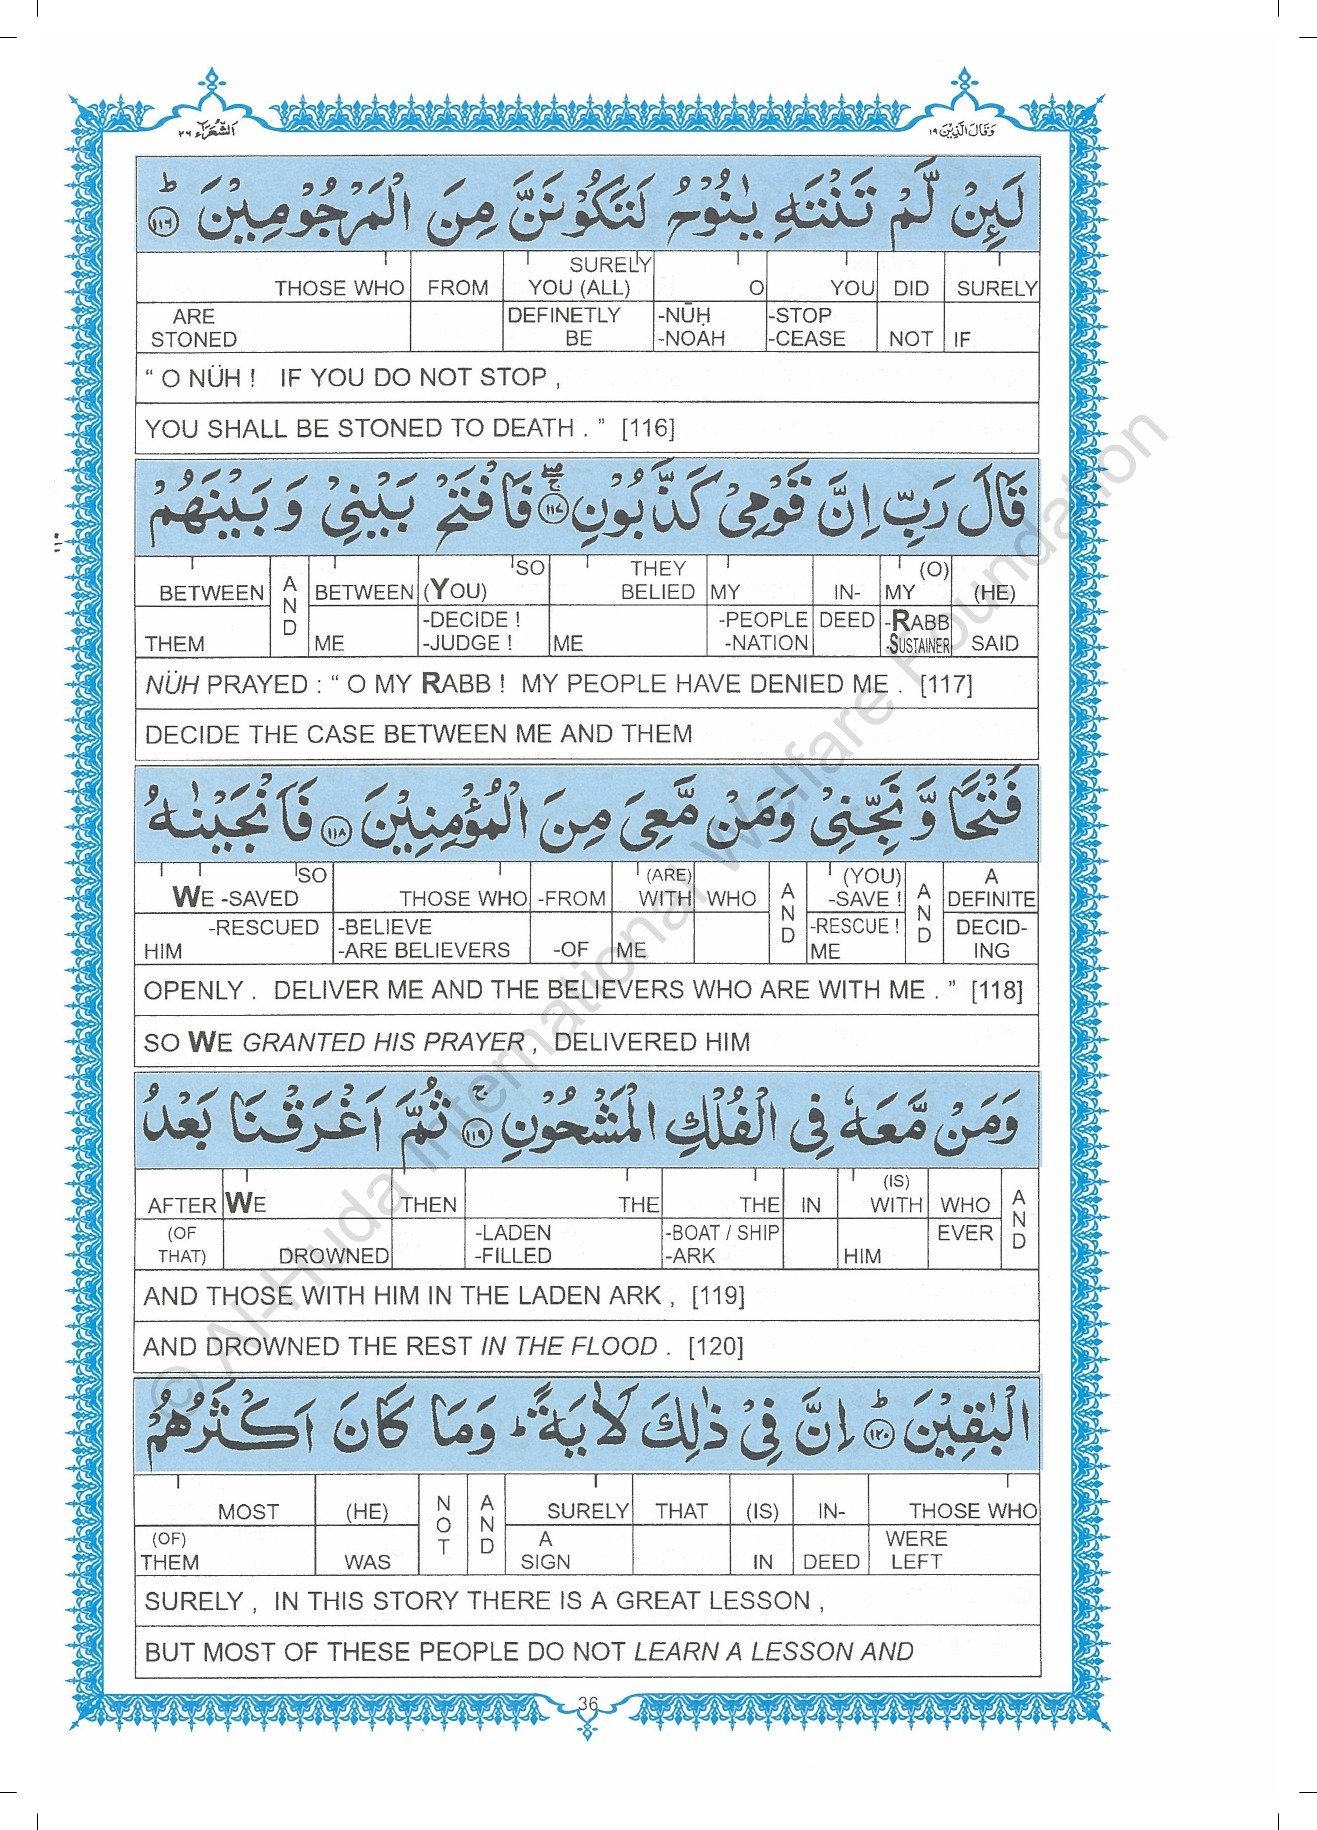 وَقَالَ الَّذِيْنَ ١٩
الشُّعَرَاء ٢٦
لَئِنْ لَّمْ تَنْتَهِ يٰنُوْحُ لَتَكُوْنَنَّ مِنَ الْمَرْجُوْمِيْنَ ﴿١١٦﴾ ؕ
THOSE WHO FROM SURELY YOU (ALL) O YOU DID SURELY
ARE STONED DEFINETLY BE -NŪḤ -NOAH -STOP -CEASE NOT IF
“ O NÜH ! IF YOU DO NOT STOP ,
YOU SHALL BE STONED TO DEATH . ” [116]
قَالَ رَبِّ اِنَّ قَوْمِيْ كَذَّبُوْنِ ﴿١١٧﴾ فَافْتَحْ بَيْنِيْ وَبَيْنَهُمْ
BETWEEN AND BETWEEN SO (YOU) THEY BELIED MY IN- (O) MY (HE)
THEM ME -DECIDE ! -JUDGE ! ME -PEOPLE -NATION DEED -RABB -SUSTAINER SAID
NÜH PRAYED : “ O MY RABB ! MY PEOPLE HAVE DENIED ME . [117]
DECIDE THE CASE BETWEEN ME AND THEM
فَتْحًا وَّنَجِّنِيْ وَمَنْ مَّعِيَ مِنَ الْمُؤْمِنِيْنَ ﴿١١٨﴾ فَاَنْجَيْنٰهُ
SO WE -SAVED THOSE WHO -FROM (ARE) WITH WHO AND (YOU) -SAVE ! AND A DEFINITE
-RESCUED HIM -BELIEVE -ARE BELIEVERS -OF ME -RESCUE ! ME DECID- ING
OPENLY . DELIVER ME AND THE BELIEVERS WHO ARE WITH ME . ” [118]
SO WE GRANTED HIS PRAYER , DELIVERED HIM
وَمَنْ مَّعَهٗ فِي الْفُلْكِ الْمَشْحُوْنِ ﴿١١٩﴾ ۚ ثُمَّ اَغْرَقْنَا بَعْدُ
AFTER WE THEN THE THE IN (IS) WITH WHO AND
(OF THAT) DROWNED -LADEN -FILLED -BOAT / SHIP -ARK HIM EVER
AND THOSE WITH HIM IN THE LADEN ARK , [119]
AND DROWNED THE REST IN THE FLOOD . [120]
الْبٰقِيْنَ ﴿١٢٠﴾ ؕ اِنَّ فِيْ ذٰلِكَ لَاٰيَةً ؕ وَمَا كَانَ اَكْثَرُهُمْ
MOST (HE) NOT AND SURELY THAT (IS) IN- THOSE WHO
(OF) THEM WAS A SIGN IN DEED WERE LEFT
SURELY , IN THIS STORY THERE IS A GREAT LESSON ,
BUT MOST OF THESE PEOPLE DO NOT LEARN A LESSON AND
36
١١٠
© Al-Huda International Welfare Foundation